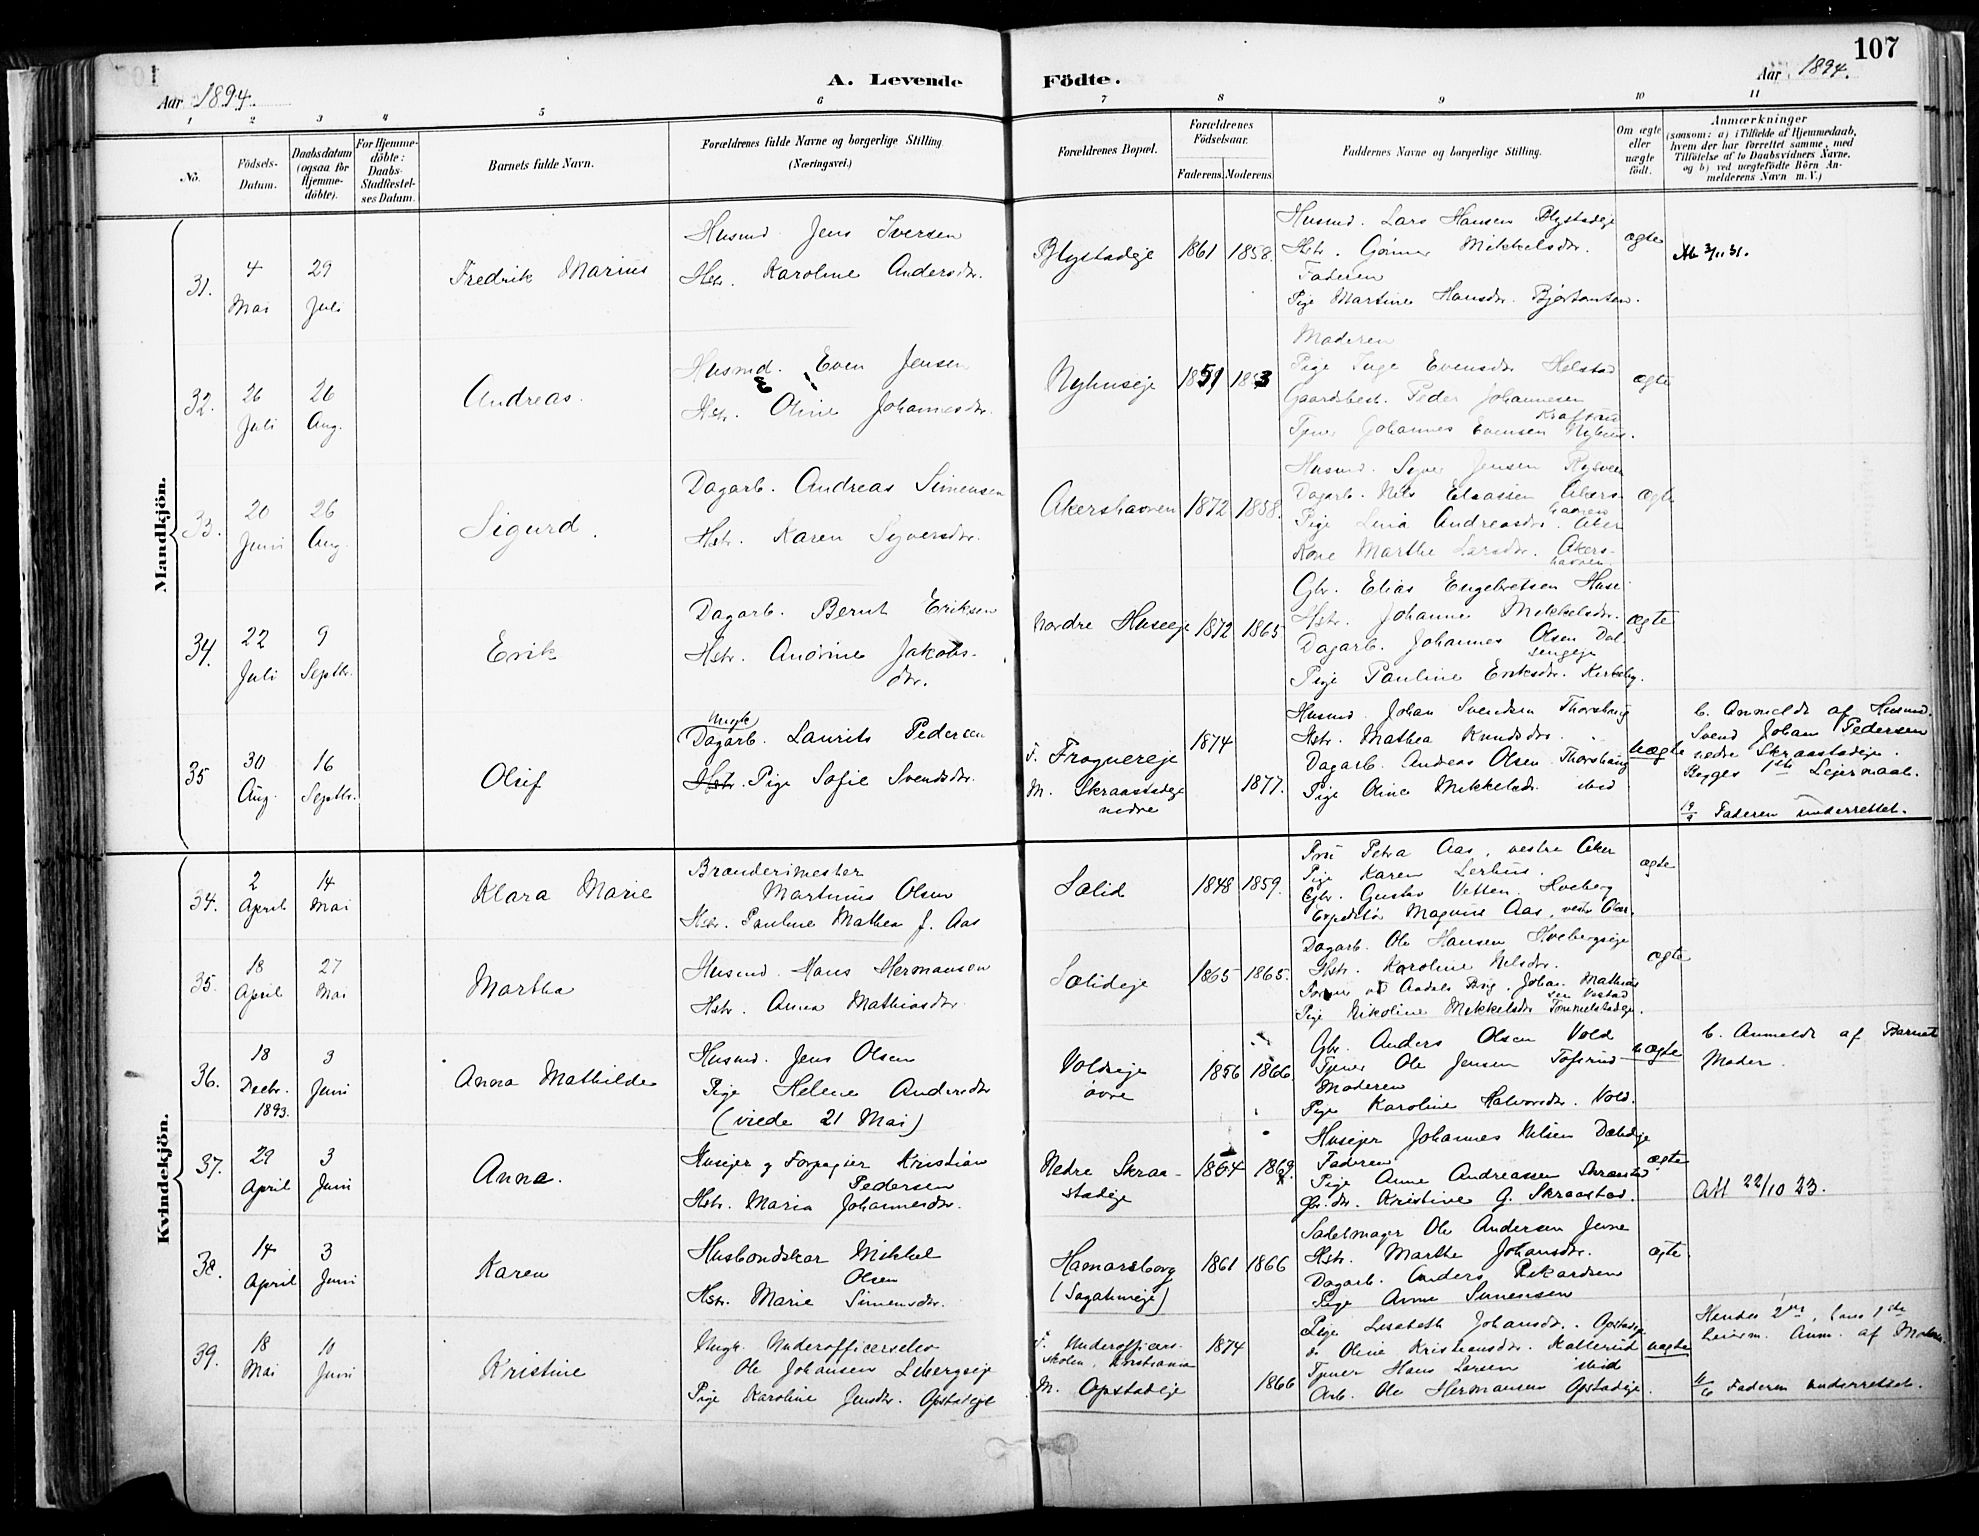 107
Aar 1894.
A. Levende
Födte.
Aar 1894.
1 2 3 4 5 6 7 8 9 10 11
No.
Födsels-Datum.
Daabsdatum (ogsaa for Hjemme-döbte).
For Hjemme-döbte: Daabs-Stadfæstel-ses Datum.
Barnets fulde Navn.
Forældrenes fulde Navne og borgerlige Stilling (Næringsvei.)
Forældrenes Bopæl.
Forældrenes Födselsaar.
Faderens. Moderens.
Faddernes Navne og borgerlige Stilling.
Om ægte eller uægte födt.
Anmærkninger
(saasom: a) i Tilfælde af Hjemmedaab,
hvem der har forrettet samme, med
Tilföielse af to Daabsvidners Navne,
og b) ved uægtefödte Börn An-
melderens Navn m. V.)
Mandkjön.
31.
4 Mai
29 Juli
Fredrik Marius
Husmd Jens Iversen
Hstr. Karoline Andersdr.
Blystadeje
1861 1858.
Husmd. Lars Hansen Blystadeje
Hstr. Gønner Mikkelsdr.
Faderen
Pige Martine Hansdr. Bjørtomten.
ægte
32.
26 Juli
26 Aug.
Andreas.
Husmd. Even Jensen
Hstr. Oline Johannesdr.
Nyhuseje
1851 1853
Moderen
Pige Inge Evensdr Helstad
Gaardbest. Peder Johannesen
Tjener Johannes Evensen Nyhus.
ægte
33.
20 Juni
26 Aug.
Sigurd.
Dagarb. Andreas Simensen
Hstr. Karen Syversdr.
Akershavnen
1872 1858.
Husmd. Syver Jensen
Dagarb. Nils Eliassen Akershavnen
Pige Lina Andreasdr. Aker
Kone Marthe Larsdr. Akershavnen.
ægte
34.
22 Juli
9 Septbr.
Erik
Dagarb. Bernt Eriksen
Hstr. Andrine Jakobsdr.
Nordre Huseeje
1872 1865
Gbr. Elias Engebretsen Huse
Hstr. Johanne Mikkelsdr.
Dagarb. Johannes Olsen
Pige Pauline Eriksdr. Kirkeby.
ægte
35
30 Aug.
16 Septbr.
Oluf
Ungk
Dagarb. Laurits Pedersen
Hstr. Pige Sofie Svendsdr.
F. Frognereje
M. Skraastadeje nedre
1874
1877.
Husmd. Johan Svendsen Thorshaug
Hstr. Mathea Knudsdr. "
Dagarb. Andreas Olsen Thorshaug
Pige Oline Mikkelsdr ibid
uægte
b. Anmeldt af Husmd.
Svend Johan Pedersen
nedre Skraastadeje.
Begges 1ste Lejermaal.
19/9 Faderen underrettet.
Kvindekjön.
34.
2 April
14 Mai
Klara Marie
Brænderimester
Martinius Olsen
Hstr. Pauline Mathea f. Aas
Sælid
1848 1859.
Fru Petra Aas, vestre Aker
Pige Karen Lerhus.
Gbr. Gustav Vetten. Hveberg
Expeditør Magnus Aas, vestr Aker.
ægte
35.
18 April
27 Mai
Martha
Husmd. Hans Hermansen
Hstr. Anna Mathiasdr.
Sælideje
1865 1865.
Dagarb. Ole Hansen Hvebergseje
Hstr. Karoline Nilsdr.
Pige Nikoline Mikkelsdr Tommelstadeje.
ægte
36.
18 Decbr. 1893.
3 Juni
Anna Mathilde
Husmd. Jens Olsen
Pige Helene Andersdr
(viede 21 Mai)
Voldseje øvre
1856 1866.
Gbr. Anders Olsen Vold
Tjener Ole Jensen Tofsrud
Moderen
Pige Karoline Halvorsdr. Vold.
uægte
b. Anmeldt af Barnets
Moder.
37.
29 April
3 Juni
Anna.
Husejer og Forpagter Kristian
Pedersen
Hstr. Maria Johannesdr.
Nedre Skraa-
stadeje
1864 1869.
Husejer Johannes Nilsen
Faderen
Pige Anne Andreassen Skraastad
Gbr.dtr. Kristine G. Skraastad.
ægte
Att 22/10 23.
38.
14 April
3 Juni
Karen
Husbondskar Mikkel
Olsen
Hstr. Marie Simensdr.
Hamarsborg
(Sagatuneje)
1861 1866
Sadelmager Ole Andersen Jevne
Hstr. Marthe Johansdr.
Dagarb. Anders Rikardsen
Pige Anne Simensen
ægte.
39.
18 Mai
10 Juni
Kristine
Ungk. Underofficerselev
Ole Johansen Libergseje
Pige Karoline Jensdr. Opstadeje
F. Underofficers-
skolen, Kristiania
M. Opstadeje
1874
1866
Pige Lisabeth Johansdr. Opstadeje
do Oline Kristiansdr. Kallerud
Tjener Hans Larsen ibid
Arb. Ole Hermansen Opstadeje.
uægte
Hendes 2det, hans 1ste
Leierm. Anm. af Moderen
11/6 Faderen underrettet.